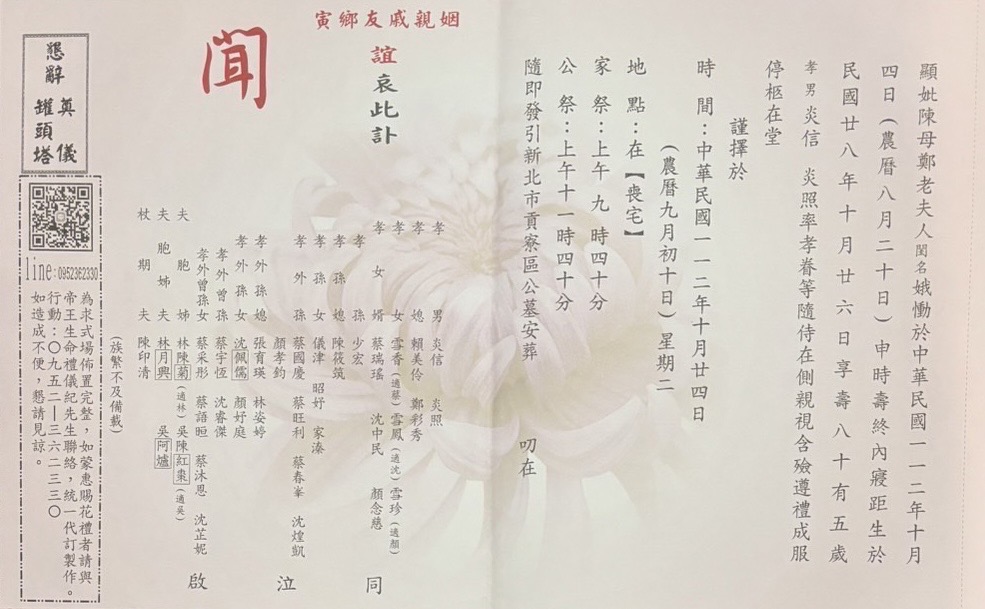 顯妣陳母鄭老夫人閨名娥慟於中華民國一一二年十月
四日(農曆八月二十日)申時壽終內寢距生於
民國廿八年十月廿六日享壽八十有五歲
孝男 炎信 炎照率孝眷等隨侍在側親視含殮遵禮成服
停柩在堂
謹擇於
時間:中華民國一一二年十月廿四日
(農曆九月初十日)星期二
地點:在【喪宅】
家祭:上午九時四十分
公祭:上午十一時四十分
隨即發引新北市貢寮區公墓安葬
叨在
姻親戚友鄉寅
誼哀此訃
聞
孝男 炎信 炎照
孝媳 賴美伶 鄭彩秀
孝女 雪香(適蔡) 雪鳳(適沈) 雪珍(適顏)
孝女婿 蔡瑞瑤 沈中民 顏念慈
孝孫 少宏
孝孫媳 陳筱筑
孝孫女 儀津 昭妤 家溱
孝外孫 蔡國慶 蔡旺利 蔡春峯 沈煌凱
顏孝鈞
孝外孫媳 張育瑛 林姿婷
孝外孫女 沈佩儒 顏妤庭
孝外曾孫 蔡宇恆 沈睿傑
孝外曾孫女 蔡采彤 蔡語晅 蔡沐恩 沈芷妮
夫胞姊 林陳菊(適林) 吳陳紅棗(適吳)
夫胞姊夫 林月興 吳阿爐
杖期夫 陳印清
同泣啟
(族繁不及備載)
懇辭
奠儀
罐頭塔
line:0952362330
為求式場佈置完整,如蒙惠賜花禮者請與
帝王生命禮儀紀先生聯絡,統一代訂製作。
行動:〇九五二—三六二三三〇
如造成不便,懇請見諒。